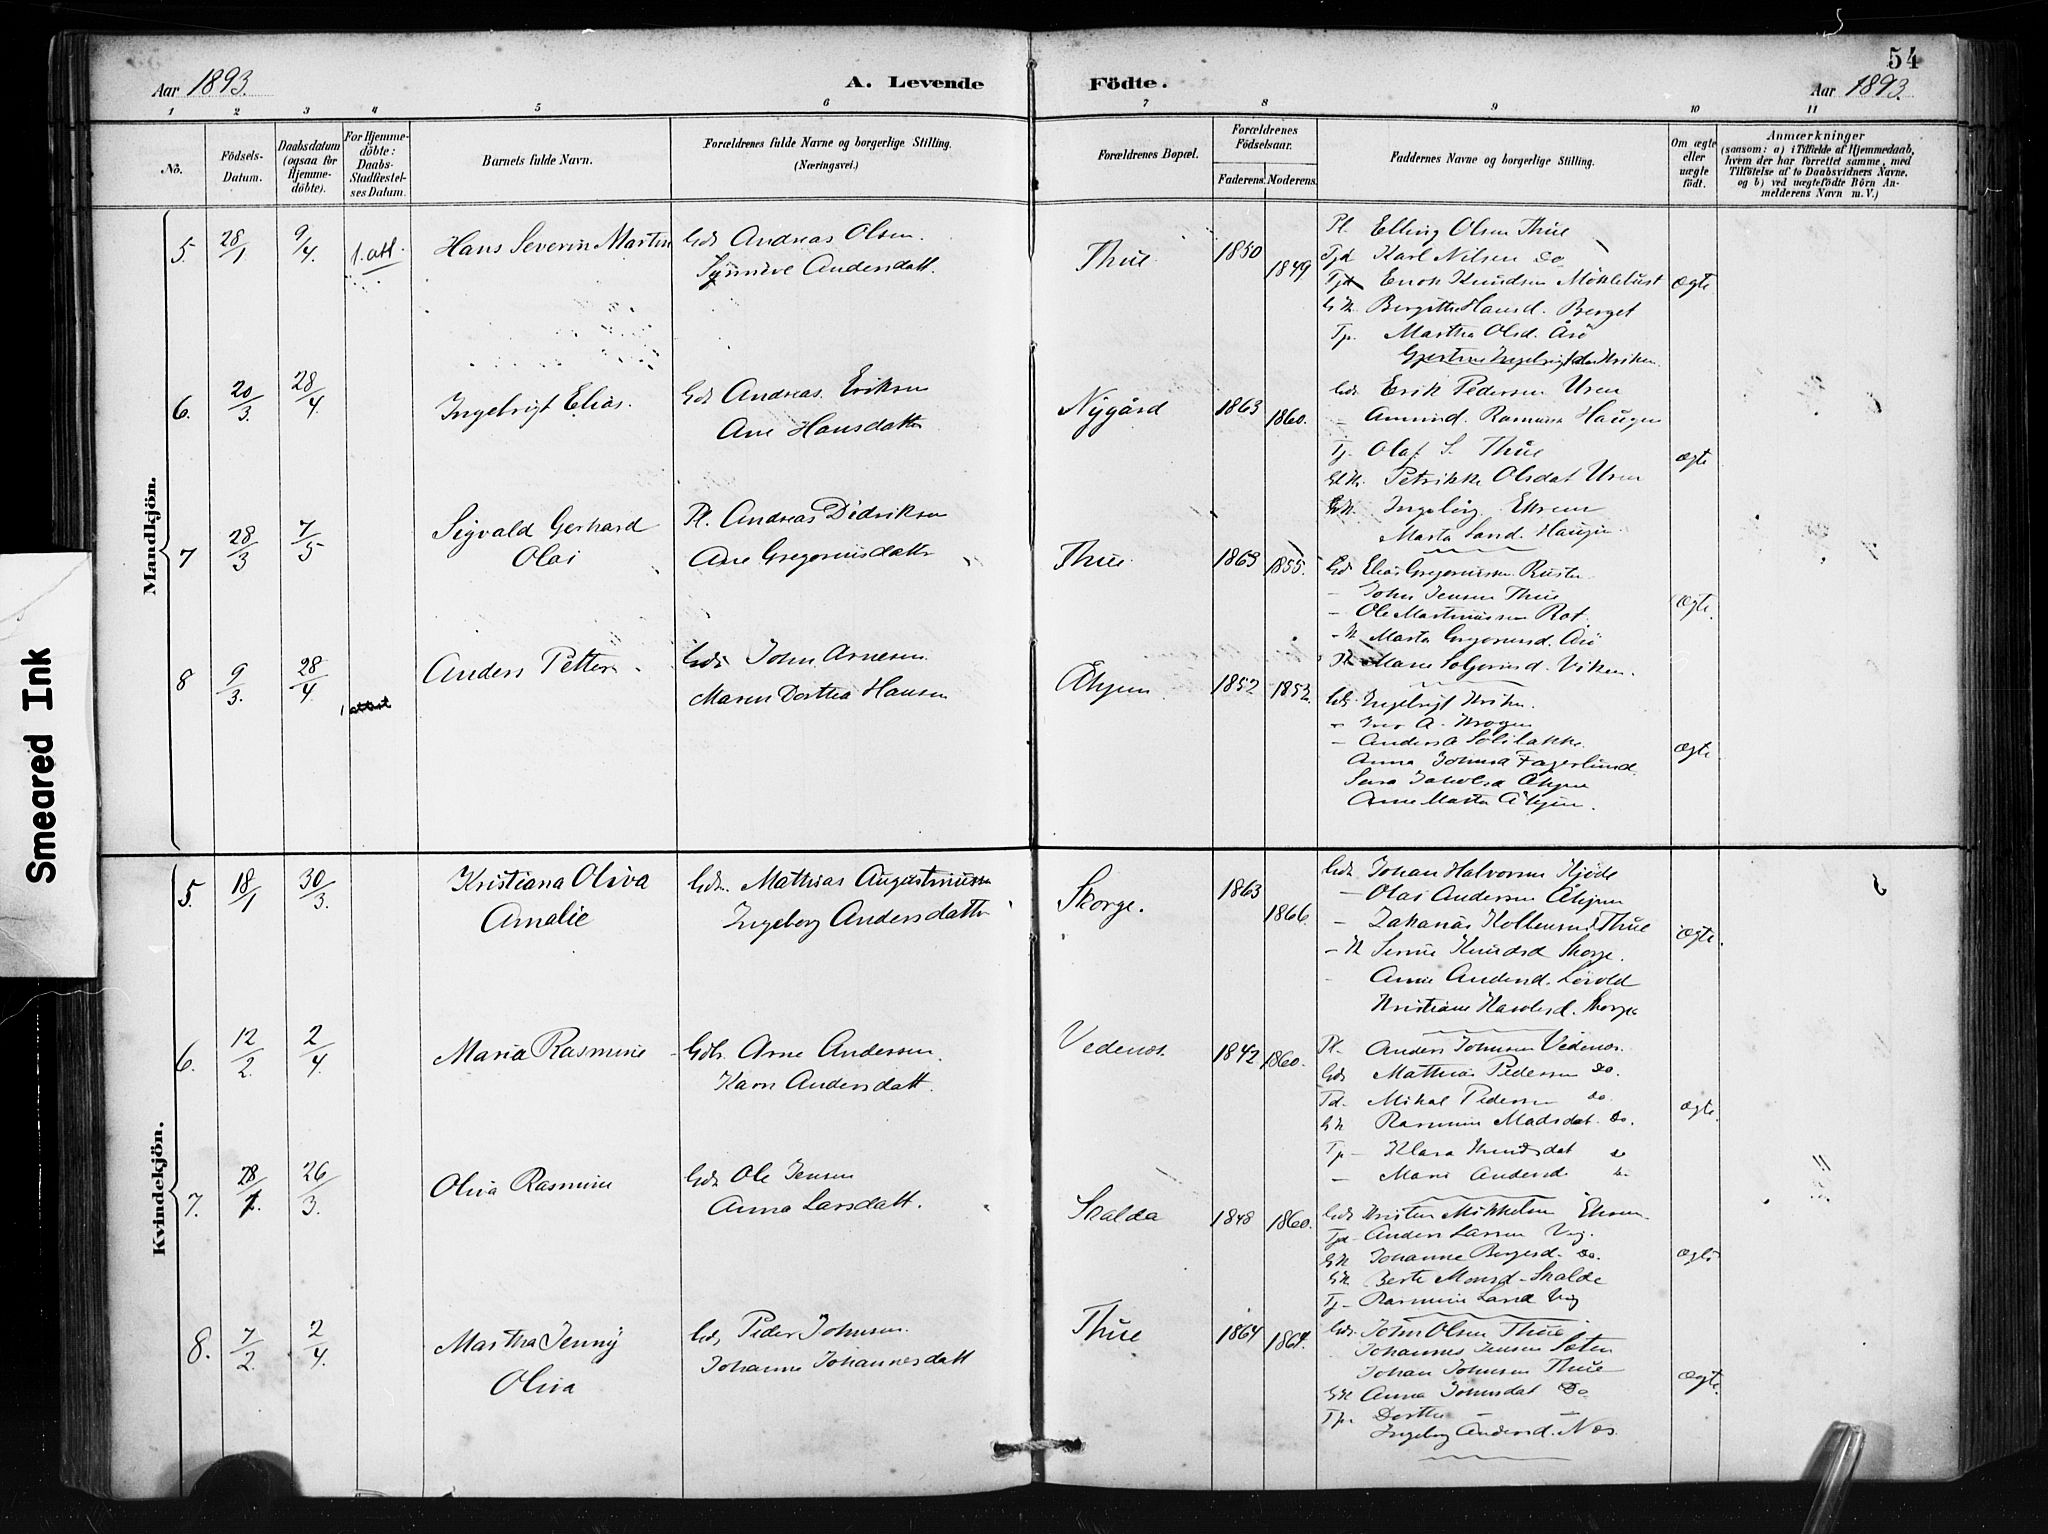 54
Aar 1893.
A. Levende Födte.
Aar 1893.
1 2 3 4 5 6 7 8 9 10 11
No.
Födsels-
Datum.
Daabsdatum
(ogsaa for
Hjemme-
döbte).
For Hjemme-
döbte:
Daabs-
Stadfæstel-
ses Datum.
Barnets fulde Navn.
Forældrenes fulde Navne og borgerlige Stilling.
(Næringsvei.)
Forældrenes Bopæl.
Forældrenes
Födselsaar.
Faderens. Moderens.
Faddernes Navne og borgerlige Stilling.
Om ægte
eller
uægte
födt.
Anmærkninger
(saasom: a) i Tilfælde af Hjemmedaab,
hvem der har forrettet samme, med
Tilföielse af to Daabsvidners Navne,
og b) ved uægtefödte Börn An-
melderens Navn m. V.)
Mandkjön.
5. 28/1 9/4. 1. att. Hans Severin Martin
Gdr Andreas Olsen.
Synnöve Andersdatt.
Thue 1850 1849
Pl. Elling Olsen Thue
Tjd Karl Nilsen do
Tjd Enok Knudsen Möklebust
Gk. Bergitte Hansd. Berget
Tp. Martha Olsd. Årö
ægte
6. 20/3. 28/4. Ingebrigt Elias.
Gdr Andreas Eriksen
Ane Hansdatter
Nygård 1863 1860.
Gdr. Erik Pedersen Uren
- Amund Rasmusen Haugen
Tj. Olaf S. Thue
Gk. Petrikke Olsdat Uren
Gk. Ingebörg Ekrem
Marta Land. Haugen
ægte
7 28/3 7/5 Sigvald Gerhard
Olai
Pl. Andreas Didriksen
Ane Gregoriusdatter
Thue. 1863 1855.
Gdr Elias Gregoriussen Rusten
- John Jensen Thue
- Ole Martinussen Rot.
- K Marta Gregoriusd. Årö
Marie Viken.
Ægte.
8 9/3. 28/4. 1 attest Anders Petter
Gdr John Arnesen.
Maren Dorthea Hansen
Åhjem 1852 1852.
Gdr. Ingebrigt Viken.
- Iver A. Krogen
- Anders A Solibakke
Anna Johnsd Fagerlund.
Sara Jakobsd Åhjem
Anne Marta Åhjem.
ægte
Kvindekjön.
5. 18/1 30/3. Kristiana Oliva
Amalie
Gdr. Mathias Augustinussen
Ingeborg Andersdatter
Skorge. 1863 1866.
Gdr. Johan Halvorsen Hjöde
- Olai Andersen Åhjem
- Zakarias Kollensen Thue
- K Serine Knudsd Skorge.
- Anne Andersd. Lövold
Kristiane Skorge
ægte.
6. 12/2. 2/4. Maria Rasmine
Gdbr. Arne Andersen.
Karn Andersdatt.
Vedenos. 1842 1860.
Pl. Anders Johnsen Vedenos.
Gdr Mathias Pedersen do
Td. Mikal Pedersen do.
Gk Rasmine Madsdat. do.
Tp - Klara Knudsdat do
- Marie Andersd
ægte.
7. 28/1. 26/3. Oliva Rasmine
Gdr Ole Jensen
Anna Larsdatt.
Skalda 1848 1860.
Gdr Kristen Mikkelsen Ekrem.
Tjd Anders Larsen Vig.
Gk Johanne Bergesd. do.
Gk. Berte Monsd. Skalde
Tj - Rasmine Larsd Vig
ægte
8. 7/2. 2/4. Martha Jenny
Oliva
Gdr Peder Johnsen.
Johanne Johannesdatt
Thue 1864 1864.
Gdr. John Olsen Thue
Johannes Jensen Sæter
Johan Johnsen Thue
Gk Anna Johnsdat Do
Tp. Dorthe
Ingeborg Andersd. Nos.
ægte.
Smeared Ink